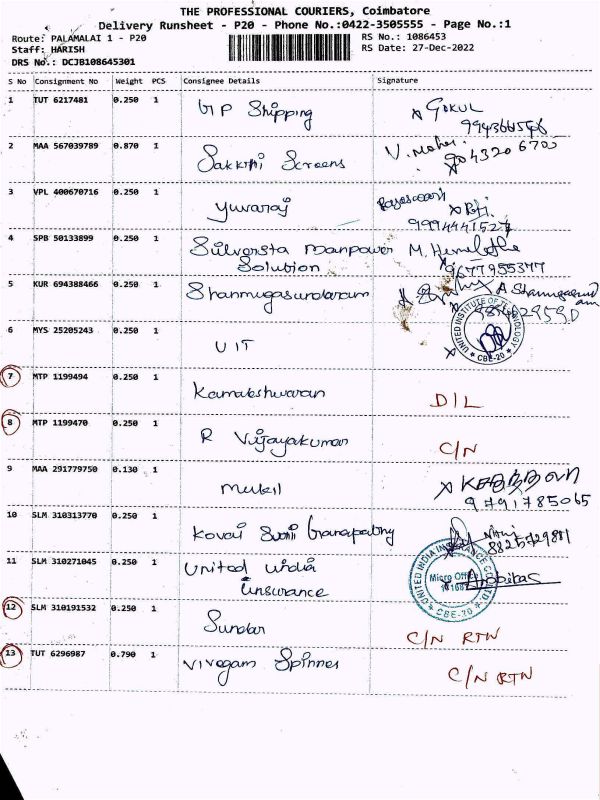 THE PROFESSIONAL COURIERS, Coimbatore
Delivery Runsheet - P20 - Phone No.:0422-3505555 - Page No.:1
Route: PALAMALAI 1 - P20
Staff: HARISH
DRS No.: DCJB108645301
RS No.: 1086453
RS Date: 27-Dec-2022
S No Consignment No Weight PCS Consignee Details Signature
1 TUT 6217481 0.250 1 Shipping GOKUL
2 MAA 567039789 0.870 1 Sakkthi Screens
3 VPL 400670716 0.250 1 Yuvaraj
4 SPB 50133899 0.250 1 Silversta Manpower
Solution 9677955377
5 KUR 694388466 0.250 1 Shanmugasundaram
6 MYS 25205243 0.250 1 UIT
UNITED INSTITUTE OF TECHNOLOGY
CBE-20
7 MTP 1199494 0.250 1 Kamaleshwaran D/L
8 MTP 1199470 0.250 1 R Vijayakumar C/N
9 MAA 291779750 0.130 1 Mukil
9791785065
10 SLM 310313770 0.250 1 Kovai Ganapathy
11 SLM 310271045 0.250 1 United India
Insurance
UNITED INDIA INSURANCE CO. LTD.
Micro Office
CBE-20
12 SLM 310191532 0.250 1 Sundar C/N RTN
13 TUT 6296987 0.790 1 Vivegam Spinner C/N RTN